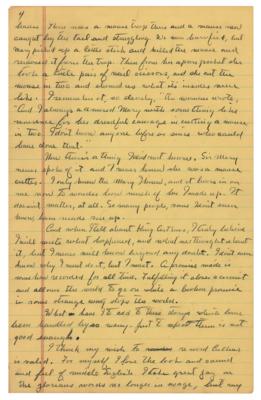 4
broken. There was a mouse trap there and a mouse was
caught by the tail and struggling. We were horrified, but
Mary picked up a little stick and killed the mouse and
removed it from the trap. Then from her apron pocket she
took a little pair of neat scissors, and she cut the
mouse in two and showed us what its insides were
like. I remember it so clearly," the woman wrote,
"and I always adored Mary with something like
reverence for her dreadful courage in cutting a mouse
in two. I don't know anyone before or since who could
have done that."
Now there is a thing I had not known. Sir Mary
never spoke of it and I never knew she was a mouse
cutter. I only knew the Mary I knew, and it turns in on
me now to wonder how much of her I made up. It
doesn't matter, at all. So many people, some I don't even
know have made me up.
And when I tell about King Arthur, I truly believe
I will write what happened, and what men thought about
it, but I never will know beyond any doubt. I don't even
know why I must do it, but I must. A promise made is
somehow recorded for all time. Fulfilling it closes account
and allows the world to go on while a broken promise
in some strange way stops the world.
What have I to add to these things which have
been handled by so many - just to repeat them is not
good enough.
I think my wish to record
is valid. For myself, I love the book and sound
and feel of middle English. I take great joy in
the glorious words no longer in usage, but my